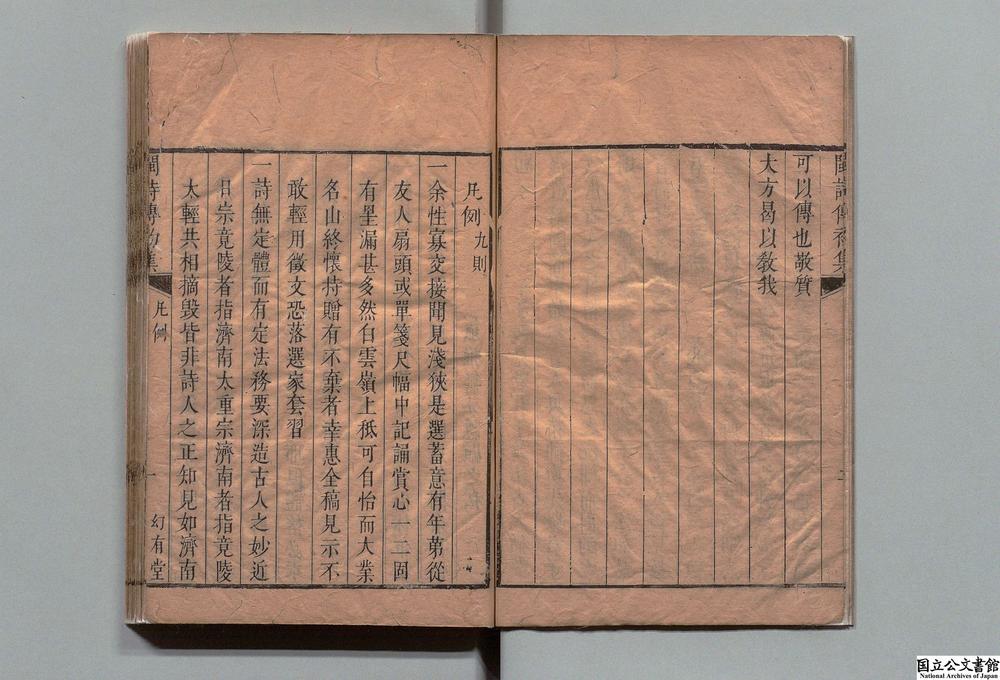 閩詩傳初集
可以傳也敬質
大方曷以教我
凡例九則
一余性寡交接聞見淺狹是選蓄意有年第從
友人扇頭或單箋尺幅中記誦賞心一二固
有罣漏甚多然白雲嶺上秪可自怡而大業
名山終懷持贈有不棄者幸惠全稿見示不
敢輕用徵文恐落選家套習
一詩無定體而有定法務要深造古人之妙近
日宗竟陵者指濟南太重宗濟南者指竟陵
太輕共相摘毀皆非詩人之正知見如濟南
閩詩傳初集
凡例
一
幻有堂
国立公文書館
National Archives of Japan